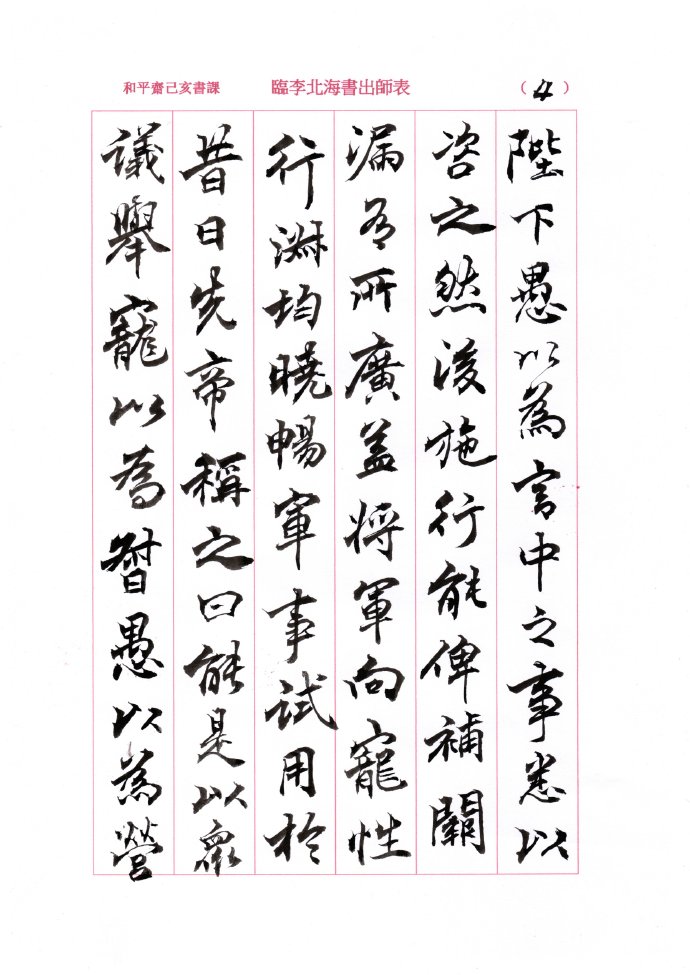 和平齋己亥書課
臨李北海書出師表
（4）
陛下愚以為宮中之事悉以
咨之然後施行能俾補闕
漏有所廣益將軍向寵性
行淑均曉暢軍事試用於
昔日先帝稱之曰能是以眾
議舉寵以為督愚以為營